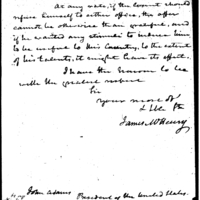 At any rate, if the Consul should
refuse himself to either office, the offer
cannot be otherwise than grateful, and
if he wanted any stimuli to induce him
to be useful to his Country, to the extent
of his talents, it might have its effect.
I have the honour to be
with the greatest respect
Sir
your most Obt
& Hble St
James McHenry
John Adams
President of the United States.